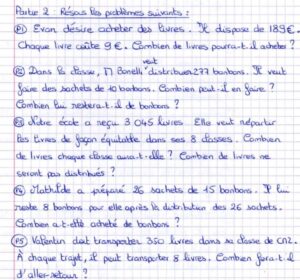 Partie 2 : Résous les problèmes suivants :
P1 Evan désire acheter des livres. Il dispose de 189€.
Chaque livre coûte 9€. Combien de livres pourra-t-il acheter ?
veut
P2 Dans la classe, M Bonelli distribuer 277 bonbons. Il veut
faire des sachets de 10 bonbons. Combien peut-il en faire ?
Combien lui restera-t-il de bonbons ?
P3 Notre école a reçu 3 045 livres. Elle veut répartir
les livres de façon équitable dans ses 8 classes. Combien
de livres chaque classe aura-t-elle ? Combien de livres ne
seront pas distribués ?
P4 Mathilde a préparé 26 sachets de 15 bonbons. Il lui
reste 8 bonbons pour elle après la distribution des 26 sachets.
Combien a-t-elle acheté de bonbons ?
P5 Valentin doit transporter 350 livres dans sa classe de CM2.
À chaque trajet, il peut transporter 8 livres. Combien fera-t-il
d'aller-retour ?